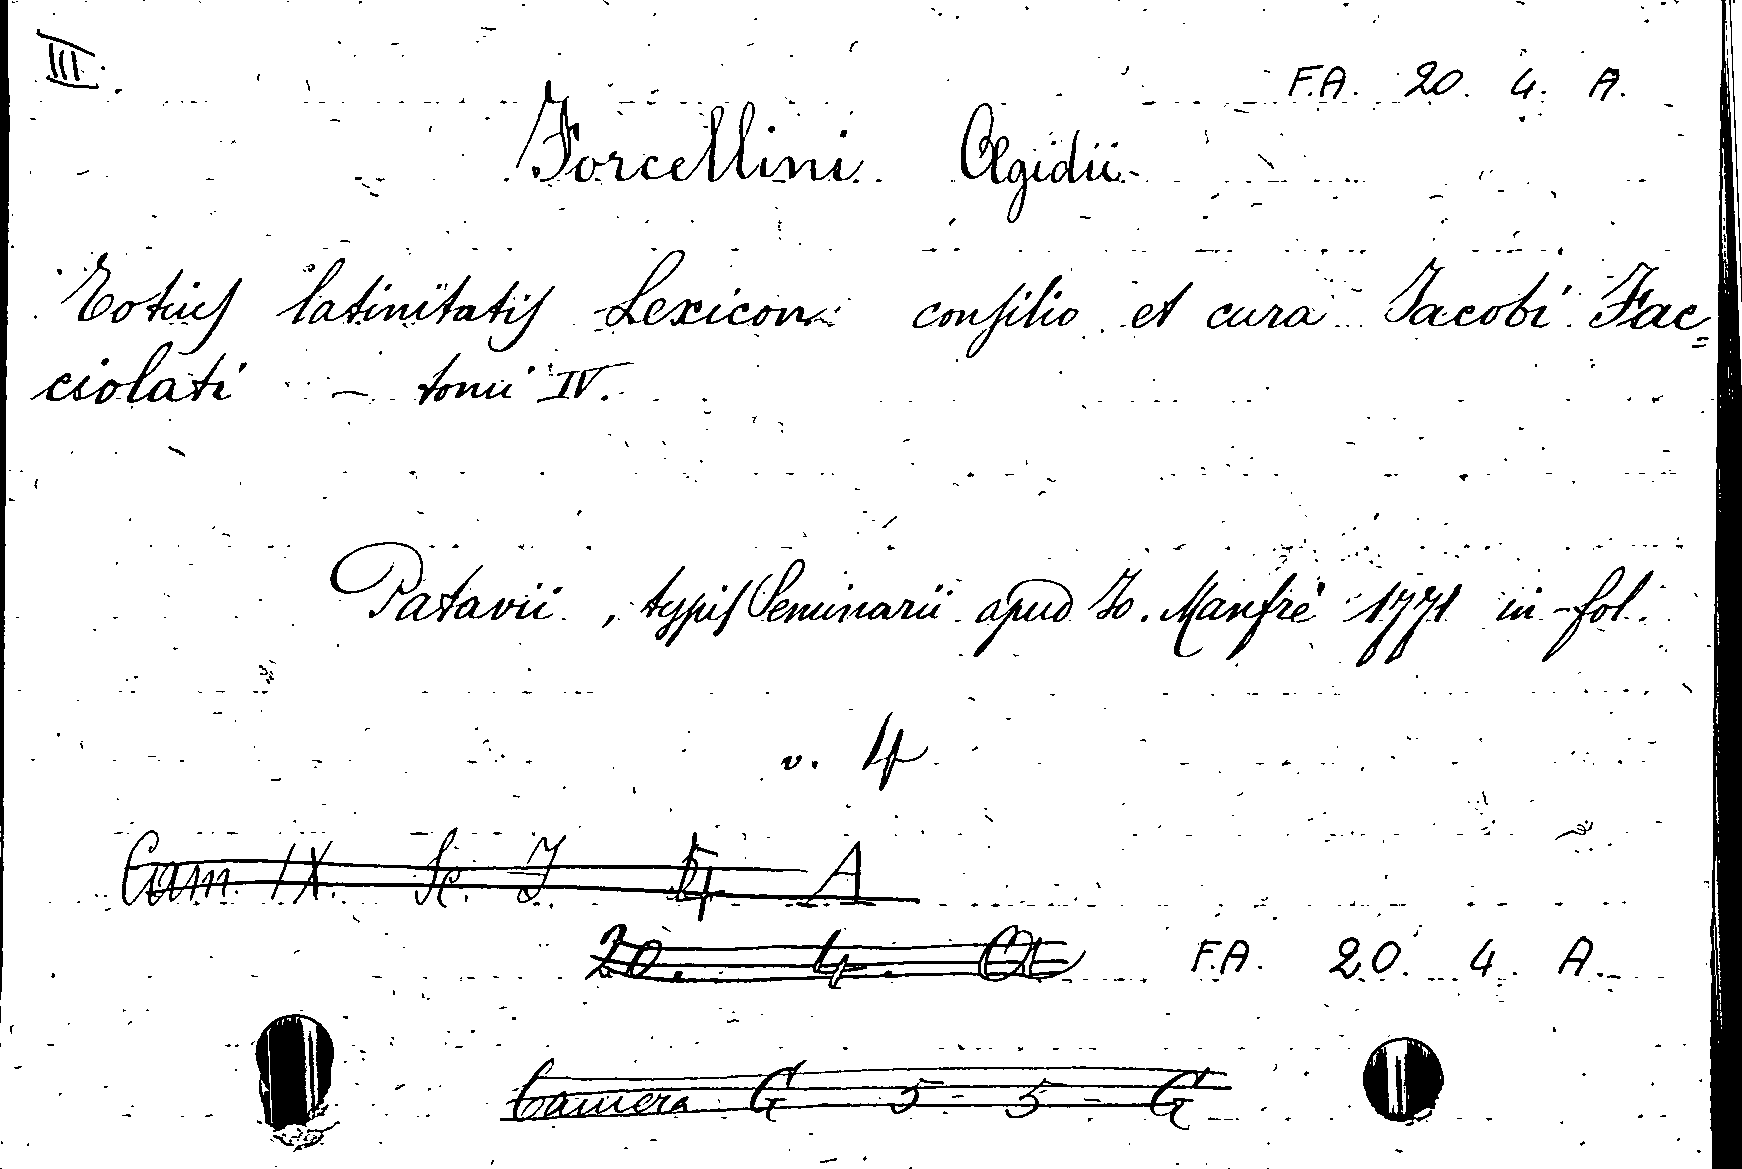 III.
F.A. 20. 4. A.
Forcellini Ægidii
Totius latinitatis Lexicon consilio et cura Jacobi Fac=
ciolati – tomi IV.
Patavii, typis Seminarii apud Jo. Manfrè 1771 in-fol.
v. 4
Cam. IX. Sc. I 4 A
20. 4. A F.A. 20. 4. A.
Camera G 5 - 5 - G